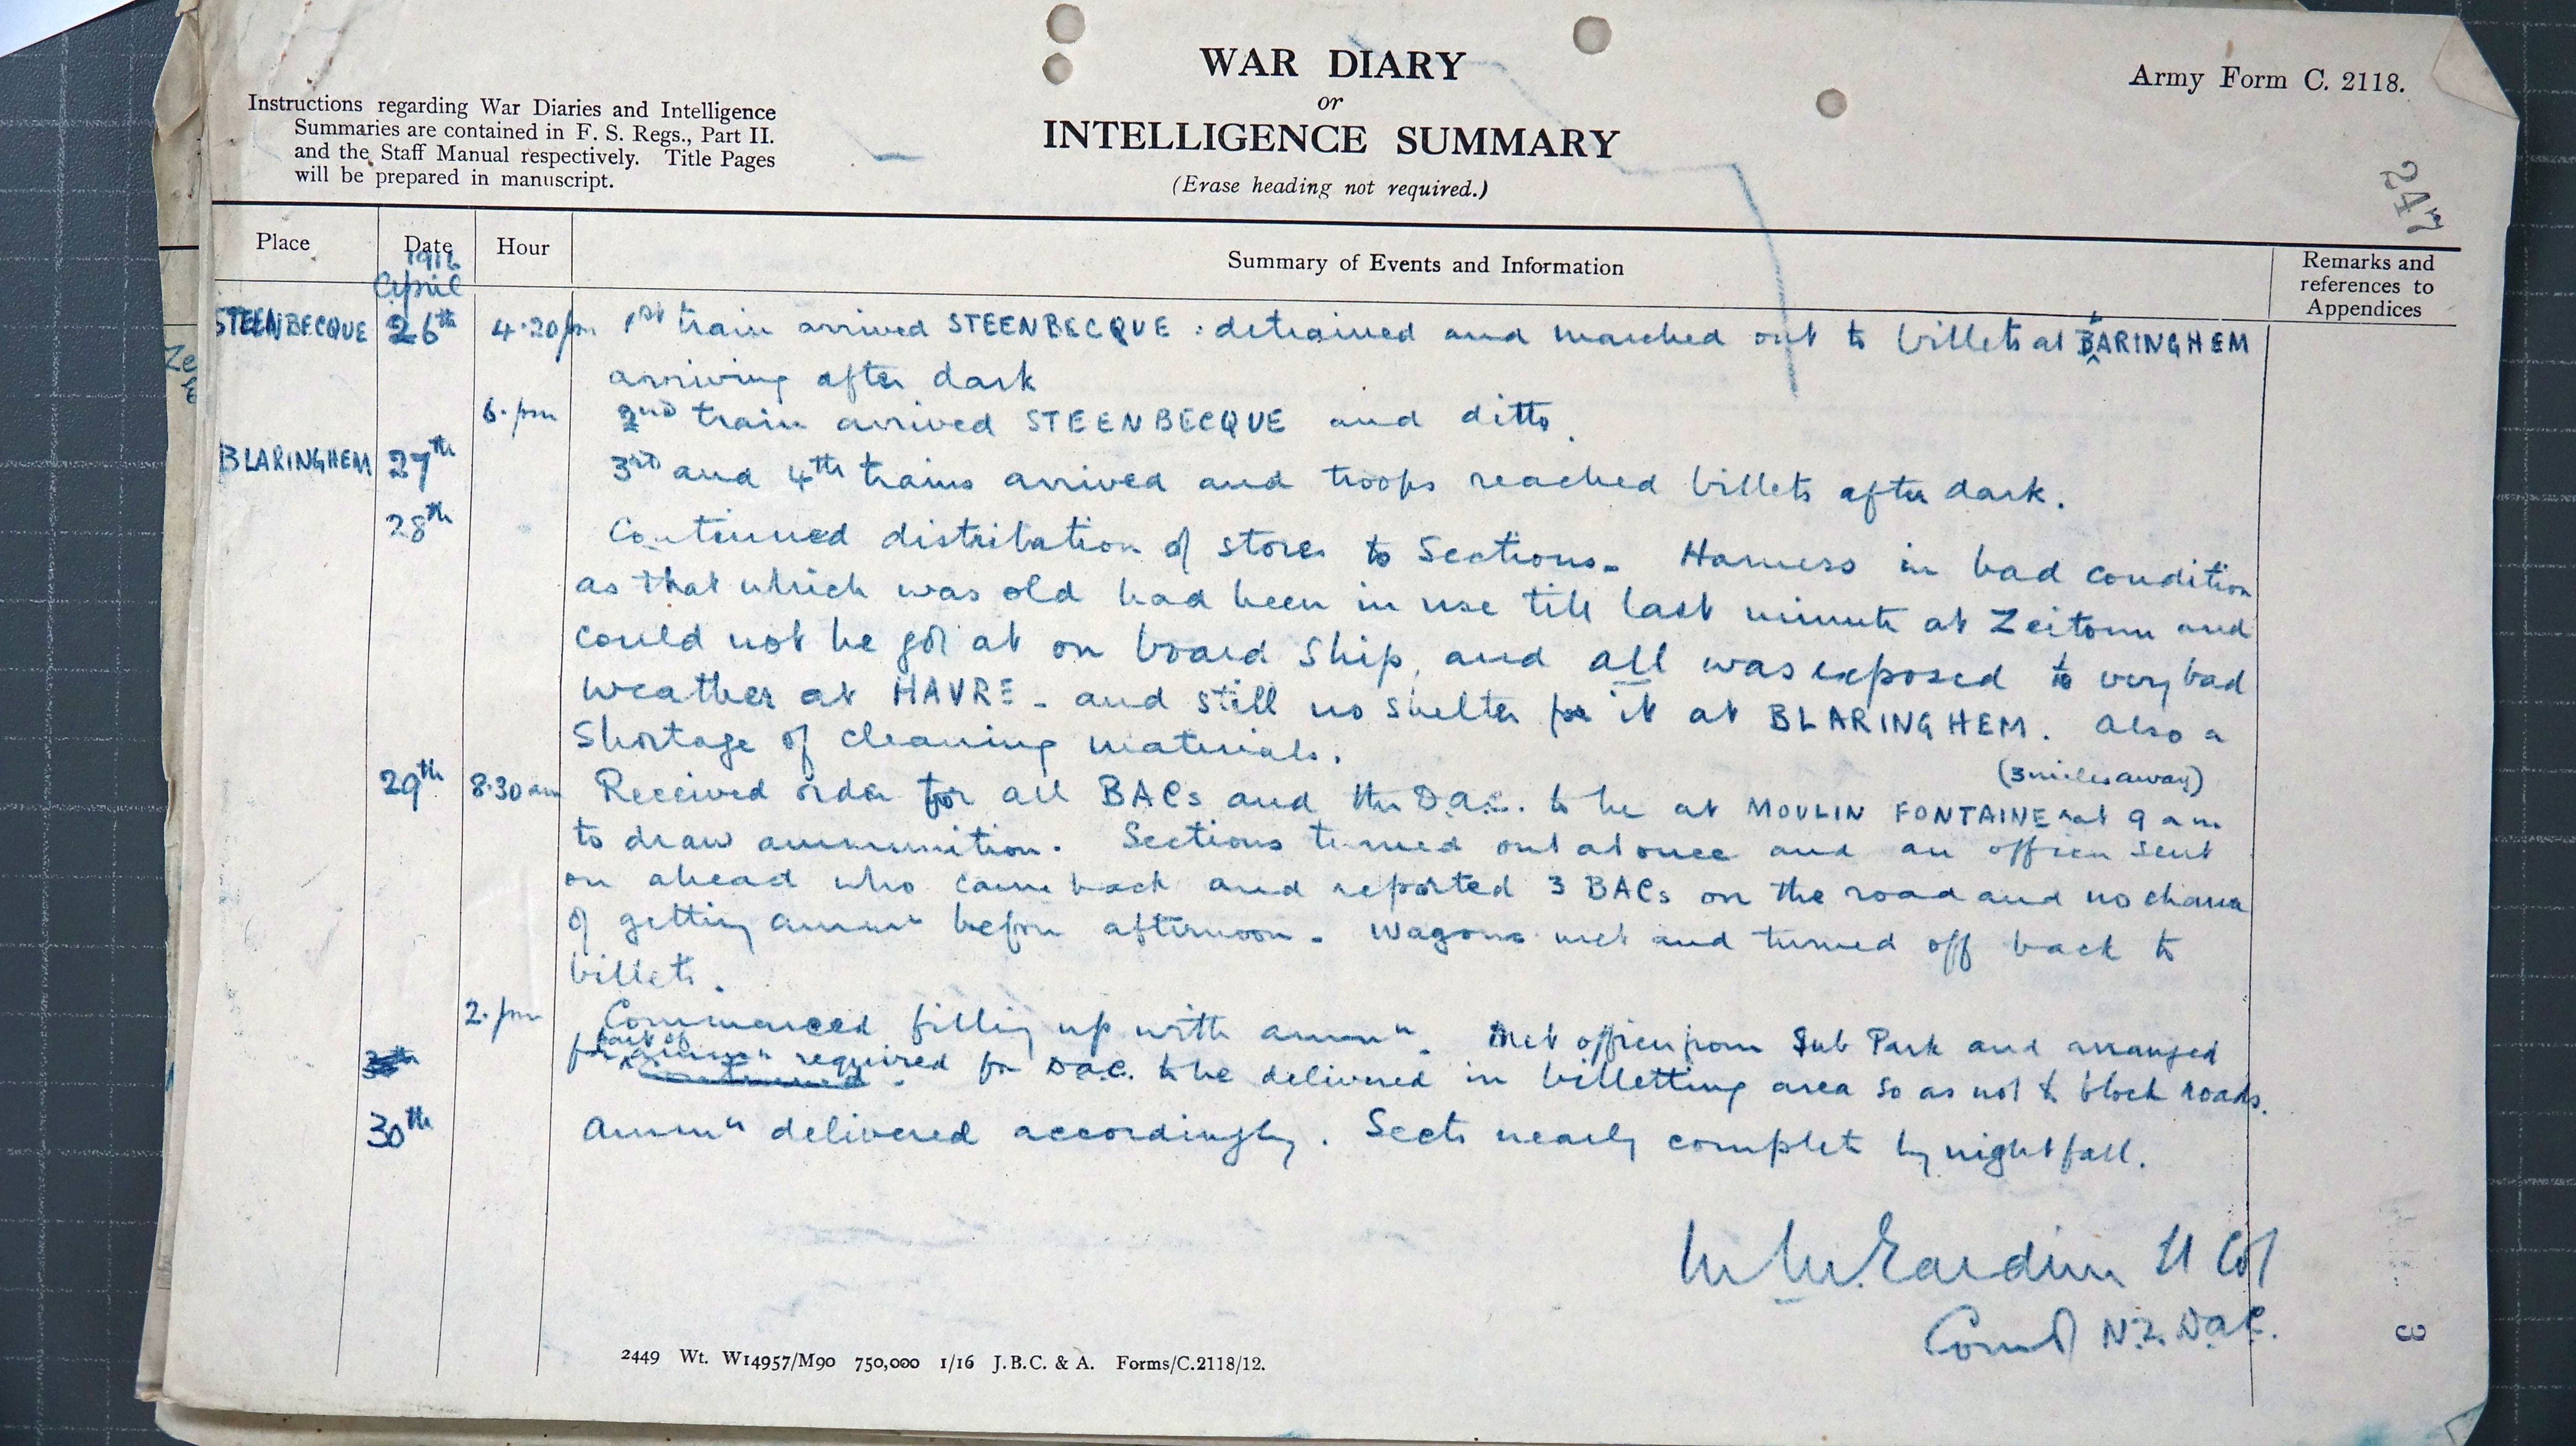 WAR DIARY
or
INTELLIGENCE SUMMARY
(Erase heading not required.)
Army Form C. 2118.
Instructions regarding War Diaries and Intelligence
Summaries are contained in F. S. Regs., Part II.
and the Staff Manual respectively. Title Pages
will be prepared in manuscript.
Place Date Hour Summary of Events and Information Remarks and references to Appendices
1916
April
STEENBECQUE 26th 4.20pm 1st train arrived STEENBECQUE. detrained and marched out to billets at BLARINGHEM
arriving after dark
6.pm 2nd train arrived STEENBECQUE and ditto.
BLARINGHEM 27th 3rd and 4th trains arrived and troops reached billets after dark.
28th Continued distribution of stores to Sections. Harness in bad condition
as that which was old had been in use till last minute at Zeitoun and
could not be got at on board ship, and all was exposed to very bad
weather at HAVRE - and still no shelter for it at BLARINGHEM. Also a
shortage of cleaning materials.
29th 8.30am Received order for all BACs and the D.A.C. to be at MOULIN FONTAINE (3 miles away) at 9 am
to draw ammunition. Sections turned out at once and an officer sent
on ahead who came back and reported 3 BACs on the road and no chance
of getting ammn before afternoon. Wagons met and turned off back to
billets.
2.pm Commenced filling up with ammn. Met officer from Sub Park and arranged
for part of ammn required for D.A.C. to be delivered in billetting area so as not to block roads.
30th Ammn delivered accordingly. Sects nearly complete by nightfall.
Lt Col
Comd N.Z. D.A.C.
2449 Wt. W14957/M90 750,000 1/16 J.B.C. & A. Forms/C.2118/12.
3